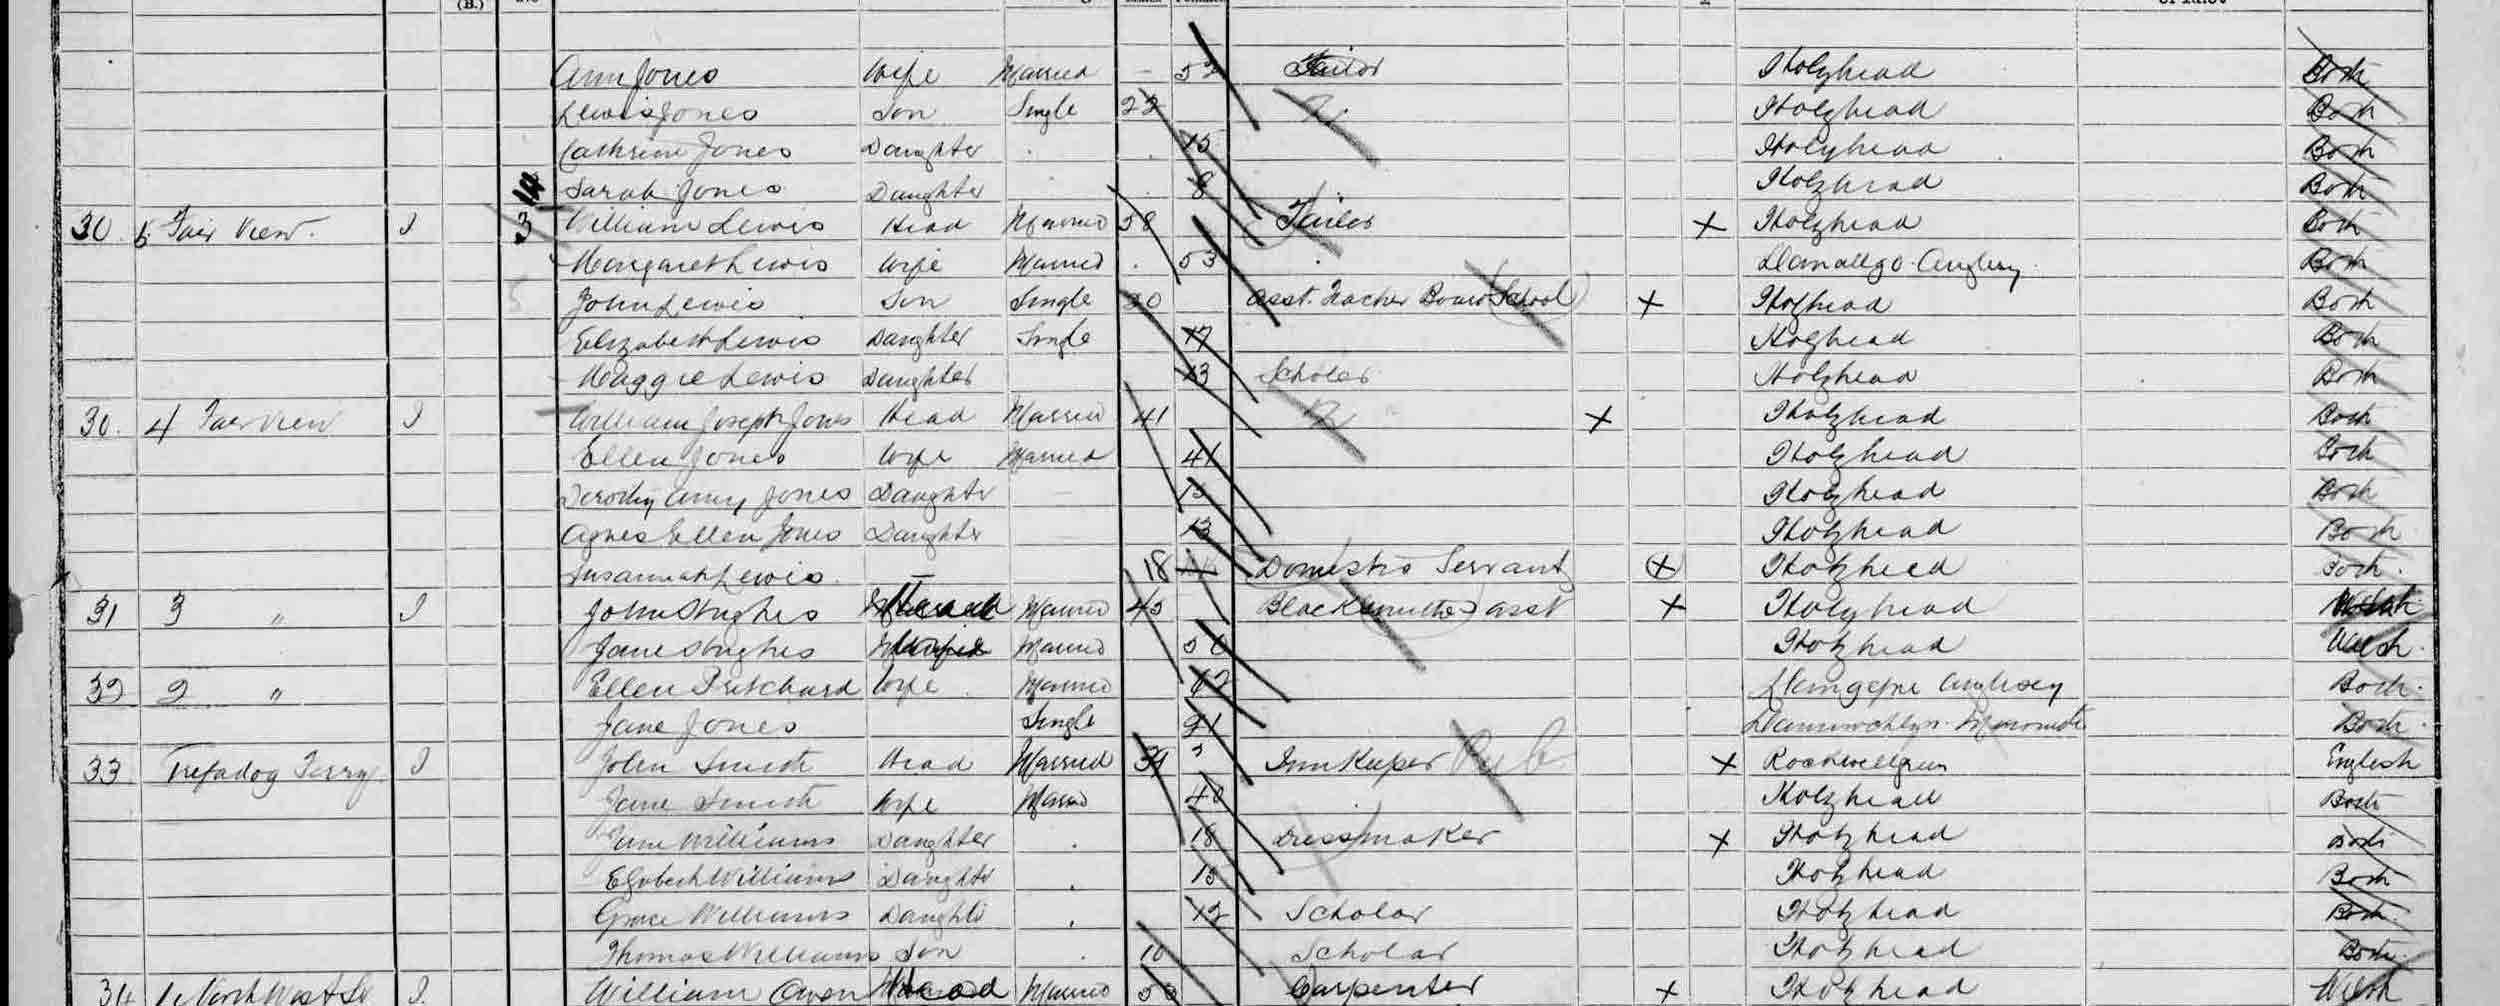 Ann Jones Wife Married - 52 Tailor Holyhead Both
Lewis Jones Son Single 22 Holyhead Both
Cathrine Jones Daughter 15 Holyhead Both
Sarah Jones Daughter 8 Holyhead Both
30 5 Fair View. 1 3 William Lewis Head Married 58 Tailor X Holyhead Both
Margaret Lewis Wife Married 53 Anglesey Both
John Lewis Son Single 30 Asst. Teacher Board School X Holyhead Both
Elizabeth Lewis Daughter Single 17 Holyhead Both
Maggie Lewis Daughter 13 Scholar Holyhead Both
30. 4 Fair View 1 William Joseph Jones Head Married 41 X Holyhead Both
Ellen Jones Wife Married 41 Holyhead Both
Jones Daughter 15 Holyhead Both
Agnes Ellen Jones Daughter 13 Holyhead Both
Susannah Lewis 18 Domestic Servant X Holyhead Both
31 3 " 1 John Hughes Head Married 45 Blacksmiths asst X Holyhead
Jane Hughes Wife Married 50 Holyhead Welsh
32 2 " Ellen Pritchard Wife Married 42 Anglesey Both
Jane Jones Single 21 Both
33 Trefadog Terry 1 John Smith Head Married 39 Inn Keeper Pub X Rockwellgreen English
Jane Smith Wife Married 40 Holyhead Both
Jane Williams Daughter 18 Dressmaker X Holyhead Both
Elizabeth Williams Daughter 15 Holyhead Both
Grace Williams Daughter 12 Scholar Holyhead Both
Thomas Williams Son 10 Scholar Holyhead Both
34 1 North West St 1. William Owen Head Married 50 Carpenter X Holyhead Welsh